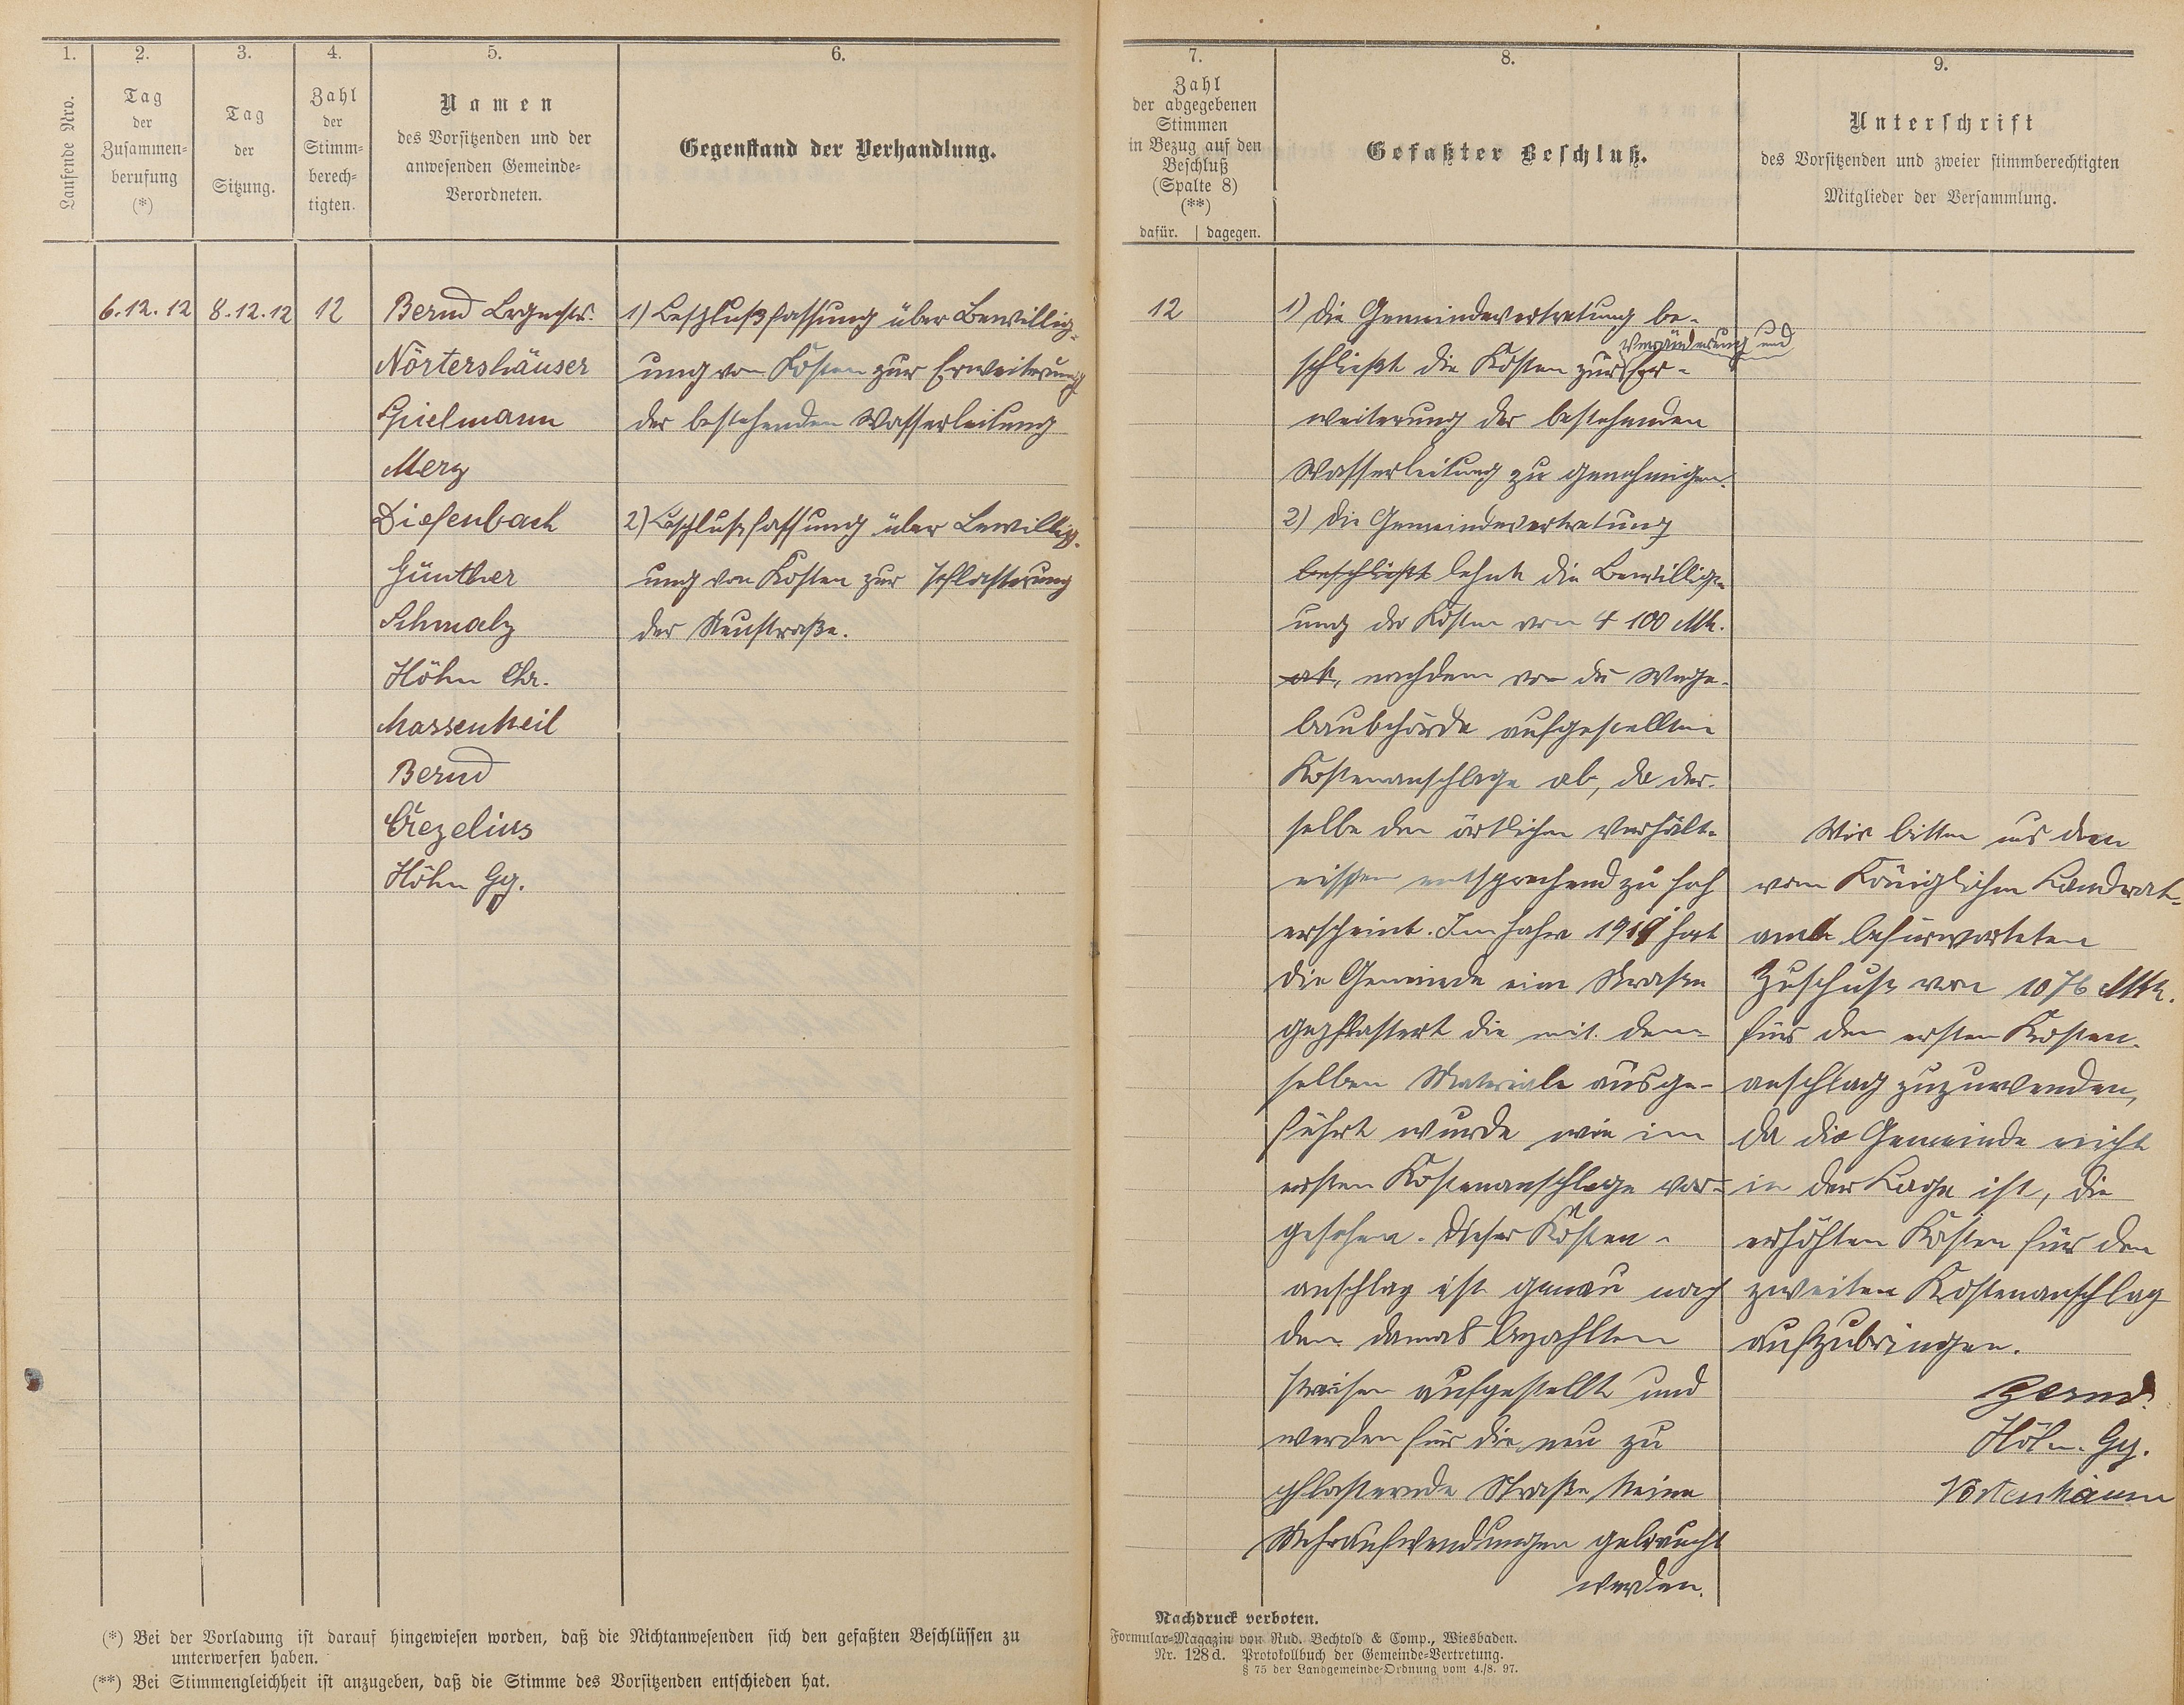 1.
2.
3.
4.
5.
6.
Laufende Nro.
Tag
der
Zusammen-
berufung
(*)
Tag
der
Sitzung.
Zahl
der
Stimm-
berech-
tigten.
Namen
des Vorsitzenden und der
anwesenden Gemeinde-
Verordneten.
Gegenstand der Verhandlung.
6.12.12
8.12.12
12
Bernd Brgmstr.
Nörtershäuser
Spielmann
Merz
Diefenbach
Günther
Schmalz
Höhn Chr.
Massenkeil
Bernd
Crezelius
Höhn Gg.
1) Beschlußfassung über Bewillig-
ung von Kosten zur Erweiterung
der bestehenden Wasserleitung
2) Beschlußfassung über Bewillig-
ung von Kosten zur Pflasterung
der Neustraße.
(*) Bei der Vorladung ist darauf hingewiesen worden, daß die Nichtanwesenden sich den gefaßten Beschlüssen zu
unterwerfen haben.
(**) Bei Stimmengleichheit ist anzugeben, daß die Stimme des Vorsitzenden entschieden hat.
7.
8.
9.
Zahl
der abgegebenen
Stimmen
in Bezug auf den
Beschluß
(Spalte 8)
(**)
dafür. | dagegen.
Gefaßter Beschluß.
Unterschrift
des Vorsitzenden und zweier stimmberechtigten
Mitglieder der Versammlung.
12
1) Die Gemeindevertretung be-
Veränderung und
schließt die Kosten zur Er-
weiterung der bestehenden
Wasserleitung zu genehmigen.
2) Die Gemeindevertretung
beschließt lehnt die Bewillig-
ung der Kosten von 4 100 Mk.
ab, nachdem von der Wege-
baubehörde aufgestellten
Kostenanschlage ab, da der-
selbe den örtlichen Verhält-
nissen entsprechend zu hoch
erscheint. Im Jahre 1911 hat
die Gemeinde eine Strasse
gepflastert die mit dem-
selben Materiale ausge-
führt wurde wie im
ersten Kostenanschlage vor-
gesehen. Dieser Kosten-
anschlag ist genau nach
den damals bezahlten
Preisen aufgestellt und
werden für die neu zu
pflasternde Straße keine
Mehraufwendungen gebraucht
werden.
Wir bitten uns den
vom Königlichen Landrat-
amte befürworteten
Zuschuss von 1076 Mk.
für den ersten Kosten-
anschlag zuzuwenden,
da die Gemeinde nicht
in der Lage ist, die
erhöhten Kosten für den
zweiten Kostenanschlag
aufzubringen.
Bernd.
Höhn Gg.
Nachdruck verboten.
Formular-Magazin von Rud. Bechtold & Comp., Wiesbaden.
Nr. 128d. Protokollbuch der Gemeinde-Vertretung.
§ 75 der Landgemeinde-Ordnung vom 4./8. 97.